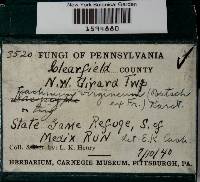 New York Botanical Garden
1594660
3520 FUNGI OF PENNSYLVANIA
Clearfield COUNTY
N.W. Girard Twp
on
State Game Refuge, S. of
Medix Run det E.K. Cash
Coll. by: L. K. Henry 9/10/40
HERBARIUM, CARNEGIE MUSEUM, PITTSBURGH, PA.